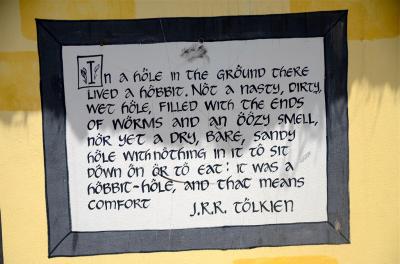 In a höle in the gröund there
lived a höbbit. Nöt a nasty, dirty,
wet höle, filled with the ends
of wörms and an öözy smell,
nör yet a dry, bare, sandy
höle with nöthing in it tö sit
döwn ön ör tö eat: it was a
höbbit-höle, and that means
cömfört
J.R.R. Tölkien